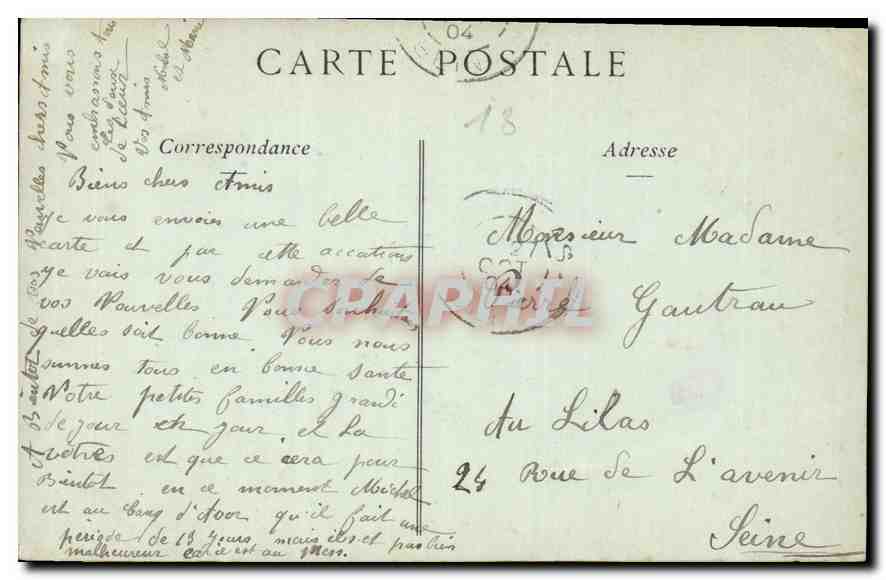 04
CARTE POSTALE
13
Correspondance
Adresse
Biens chers Amis
Je vous envoies une belle
carte et par cette accations
je vais vous demander de
vos Nouvelles Nous souhaitons
quelles soit bonne Nous nous
sommes tous en bonne sante
Notre petites familles grandi
de jour en jour et la
votres est que ce cera pour
Bientot en ce moment Michel
est au Camp d'Avor qu'il fait une
periode de 13 jours mais il est pas très
malheureux car il est au mess.
A Bientot de vos Nouvelles chers Amis
Nous vous
embrassons tous
les deux
de Cœur
Vos Amis
Michel
et Marie
Monsieur Madame
Gautrau
Au Lilas
24 Rue de L'avenir
Seine
CPAPHIL